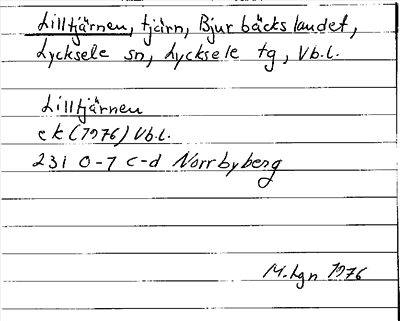 Lilltjärnen, tjärn, Bjurbäckslandet,
Lycksele sn, Lycksele tg, Vb.l.
Lilltjärnen
ek (1976) Vb.l.
23 I 0-1 c-d Norrbyberg
M. Lgn 1976